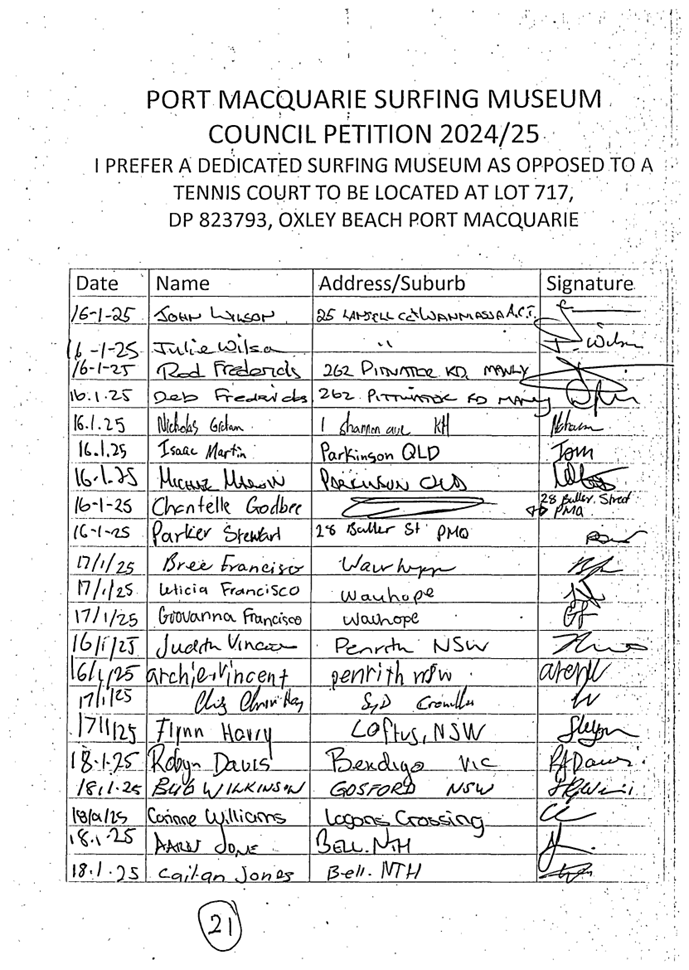 PORT MACQUARIE SURFING MUSEUM
COUNCIL PETITION 2024/25
I PREFER A DEDICATED SURFING MUSEUM AS OPPOSED TO A
TENNIS COURT TO BE LOCATED AT LOT 717,
DP 823793, OXLEY BEACH PORT MACQUARIE
Date Name Address/Suburb Signature
16-1-25 JOHN WILSON 25 A.C.T.
16-1-25 Julie Wilson " J. Wilson
16-1-25 Rod Fredericks 262 PITTWATER RD, MANLY
16.1.25 Deb Fredericks 262 PITTWATER RD MANLY
16.1.25 Nicholas 1 shannon ave KH
16.1.25 Isaac Martin Parkinson QLD Tom
16-1-25 PARKINSON QLD
16-1-25 Chantelle Godbee 28 Buller Street
PMQ
16-1-25 Parker Stewart 28 Buller St PMQ
17/1/25 Bree Francisco Wauhope
17/1/25 Leticia Francisco Wauhope
17/1/25 Giovanna Francisco wauhope GF
16/1/25 Judith Vincent Penrith NSW
16/1/25 archie Vincent penrith nsw
17/1/25 SYD Cronulla
17/1/25 Flynn Harry Loftus, NSW
18.1.25 Robyn Davis Bendigo VIC
18.1.25 BOB WILKINSON GOSFORD NSW
18/01/25 Corinne Williams Logans Crossing
18.1.25 AARON JONE BELL. NTH
18.1.25 Caitlan Jones Bell. NTH
21